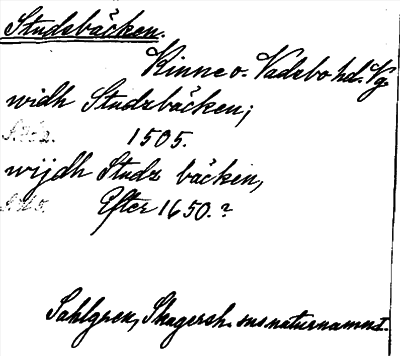 Studsbäcken.
Kinne o. Vadsbo hd. Vg
widh Studzbäcken;
1505.
wijdh Studz bäcken,
Efter 1650.?
Sahlgren, Skagersh. sns naturnamn I.